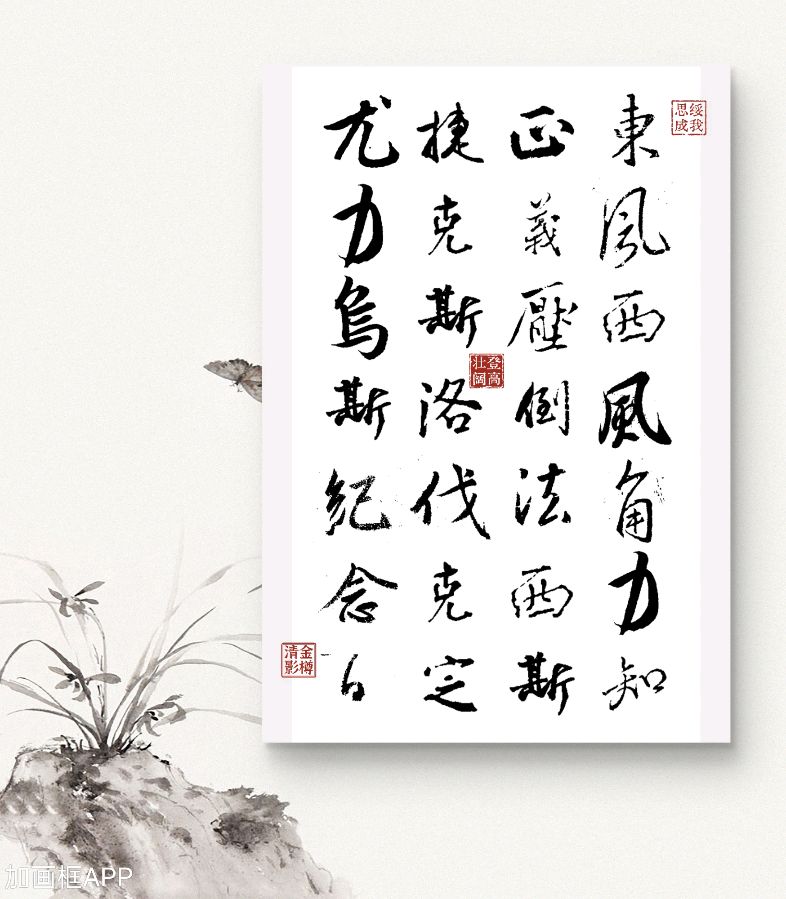 绥我思成
東風西風角力知
正義壓倒法西斯
登高壮阔
捷克斯洛伐克定
尤力烏斯紀念日
金樽清影
加画框APP